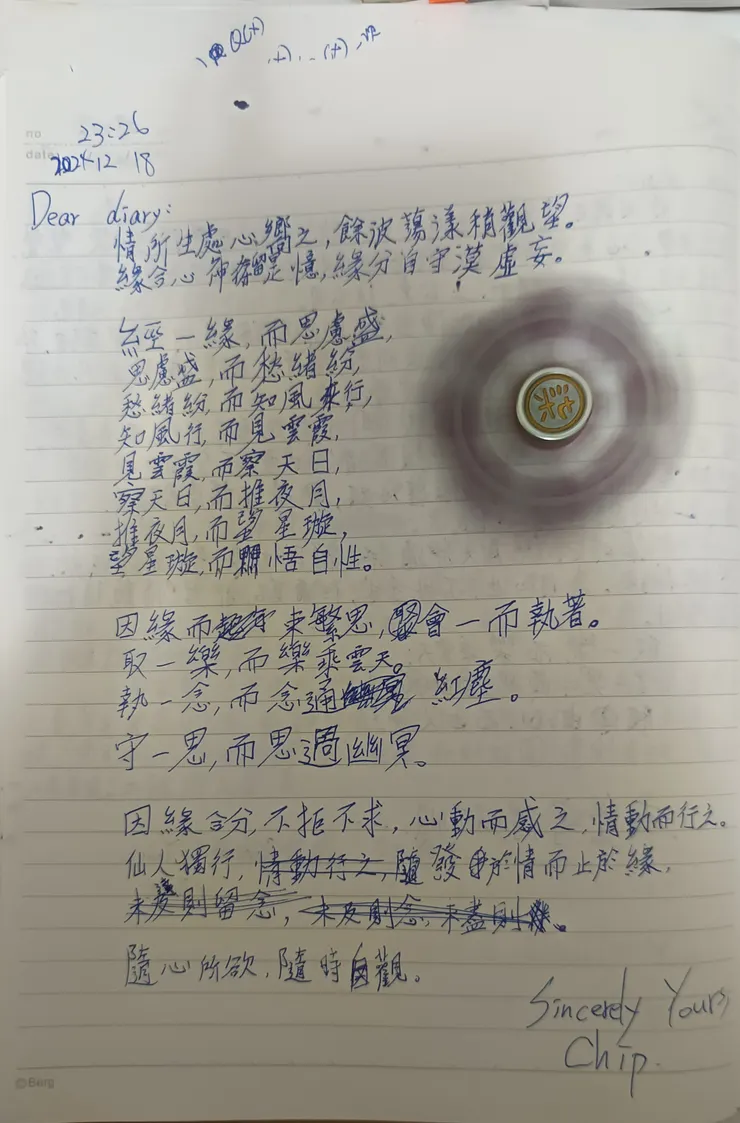 no
23:26
date 2024 12 18
Dear diary:
情所生處心嚮之，餘波蕩漾稍觀望。
緣合心 是憶，緣分自守漠虛妄。
經一緣，而思慮盛，
思慮盛，而愁緒紛，
愁緒紛，而知風行，
知風行，而見雲霞，
見雲霞，而察天日，
察天日，而推夜月，
推夜月，而望星璇，
望星璇，而 悟自性。
因緣而 束繁思，聚會一而執著。
取一樂，而樂乘雲天。
執一念，而念通 紅塵。
守一思，而思週幽冥。
因緣合分，不拒不求，心動而感之，情動而行之。
仙人獨行，情動行之，隨發於情而止於緣，
未 則留念，未及則念，未盡則 。
隨心所欲，隨時自觀。
Sincerely Yours
Chip.
©Berg